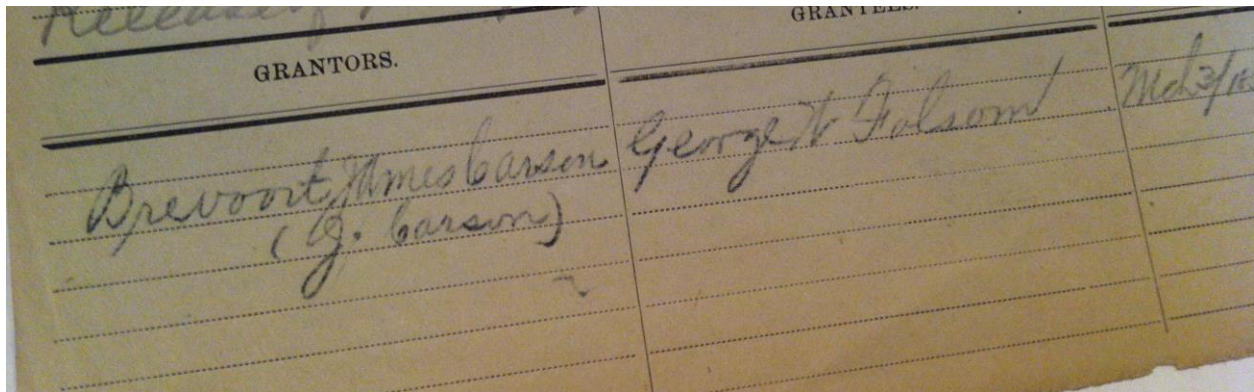 Release of
GRANTORS.
GRANTEES.
Brevoort, James Carson
(J. Carson)
George W Folsom
Mch 3/18